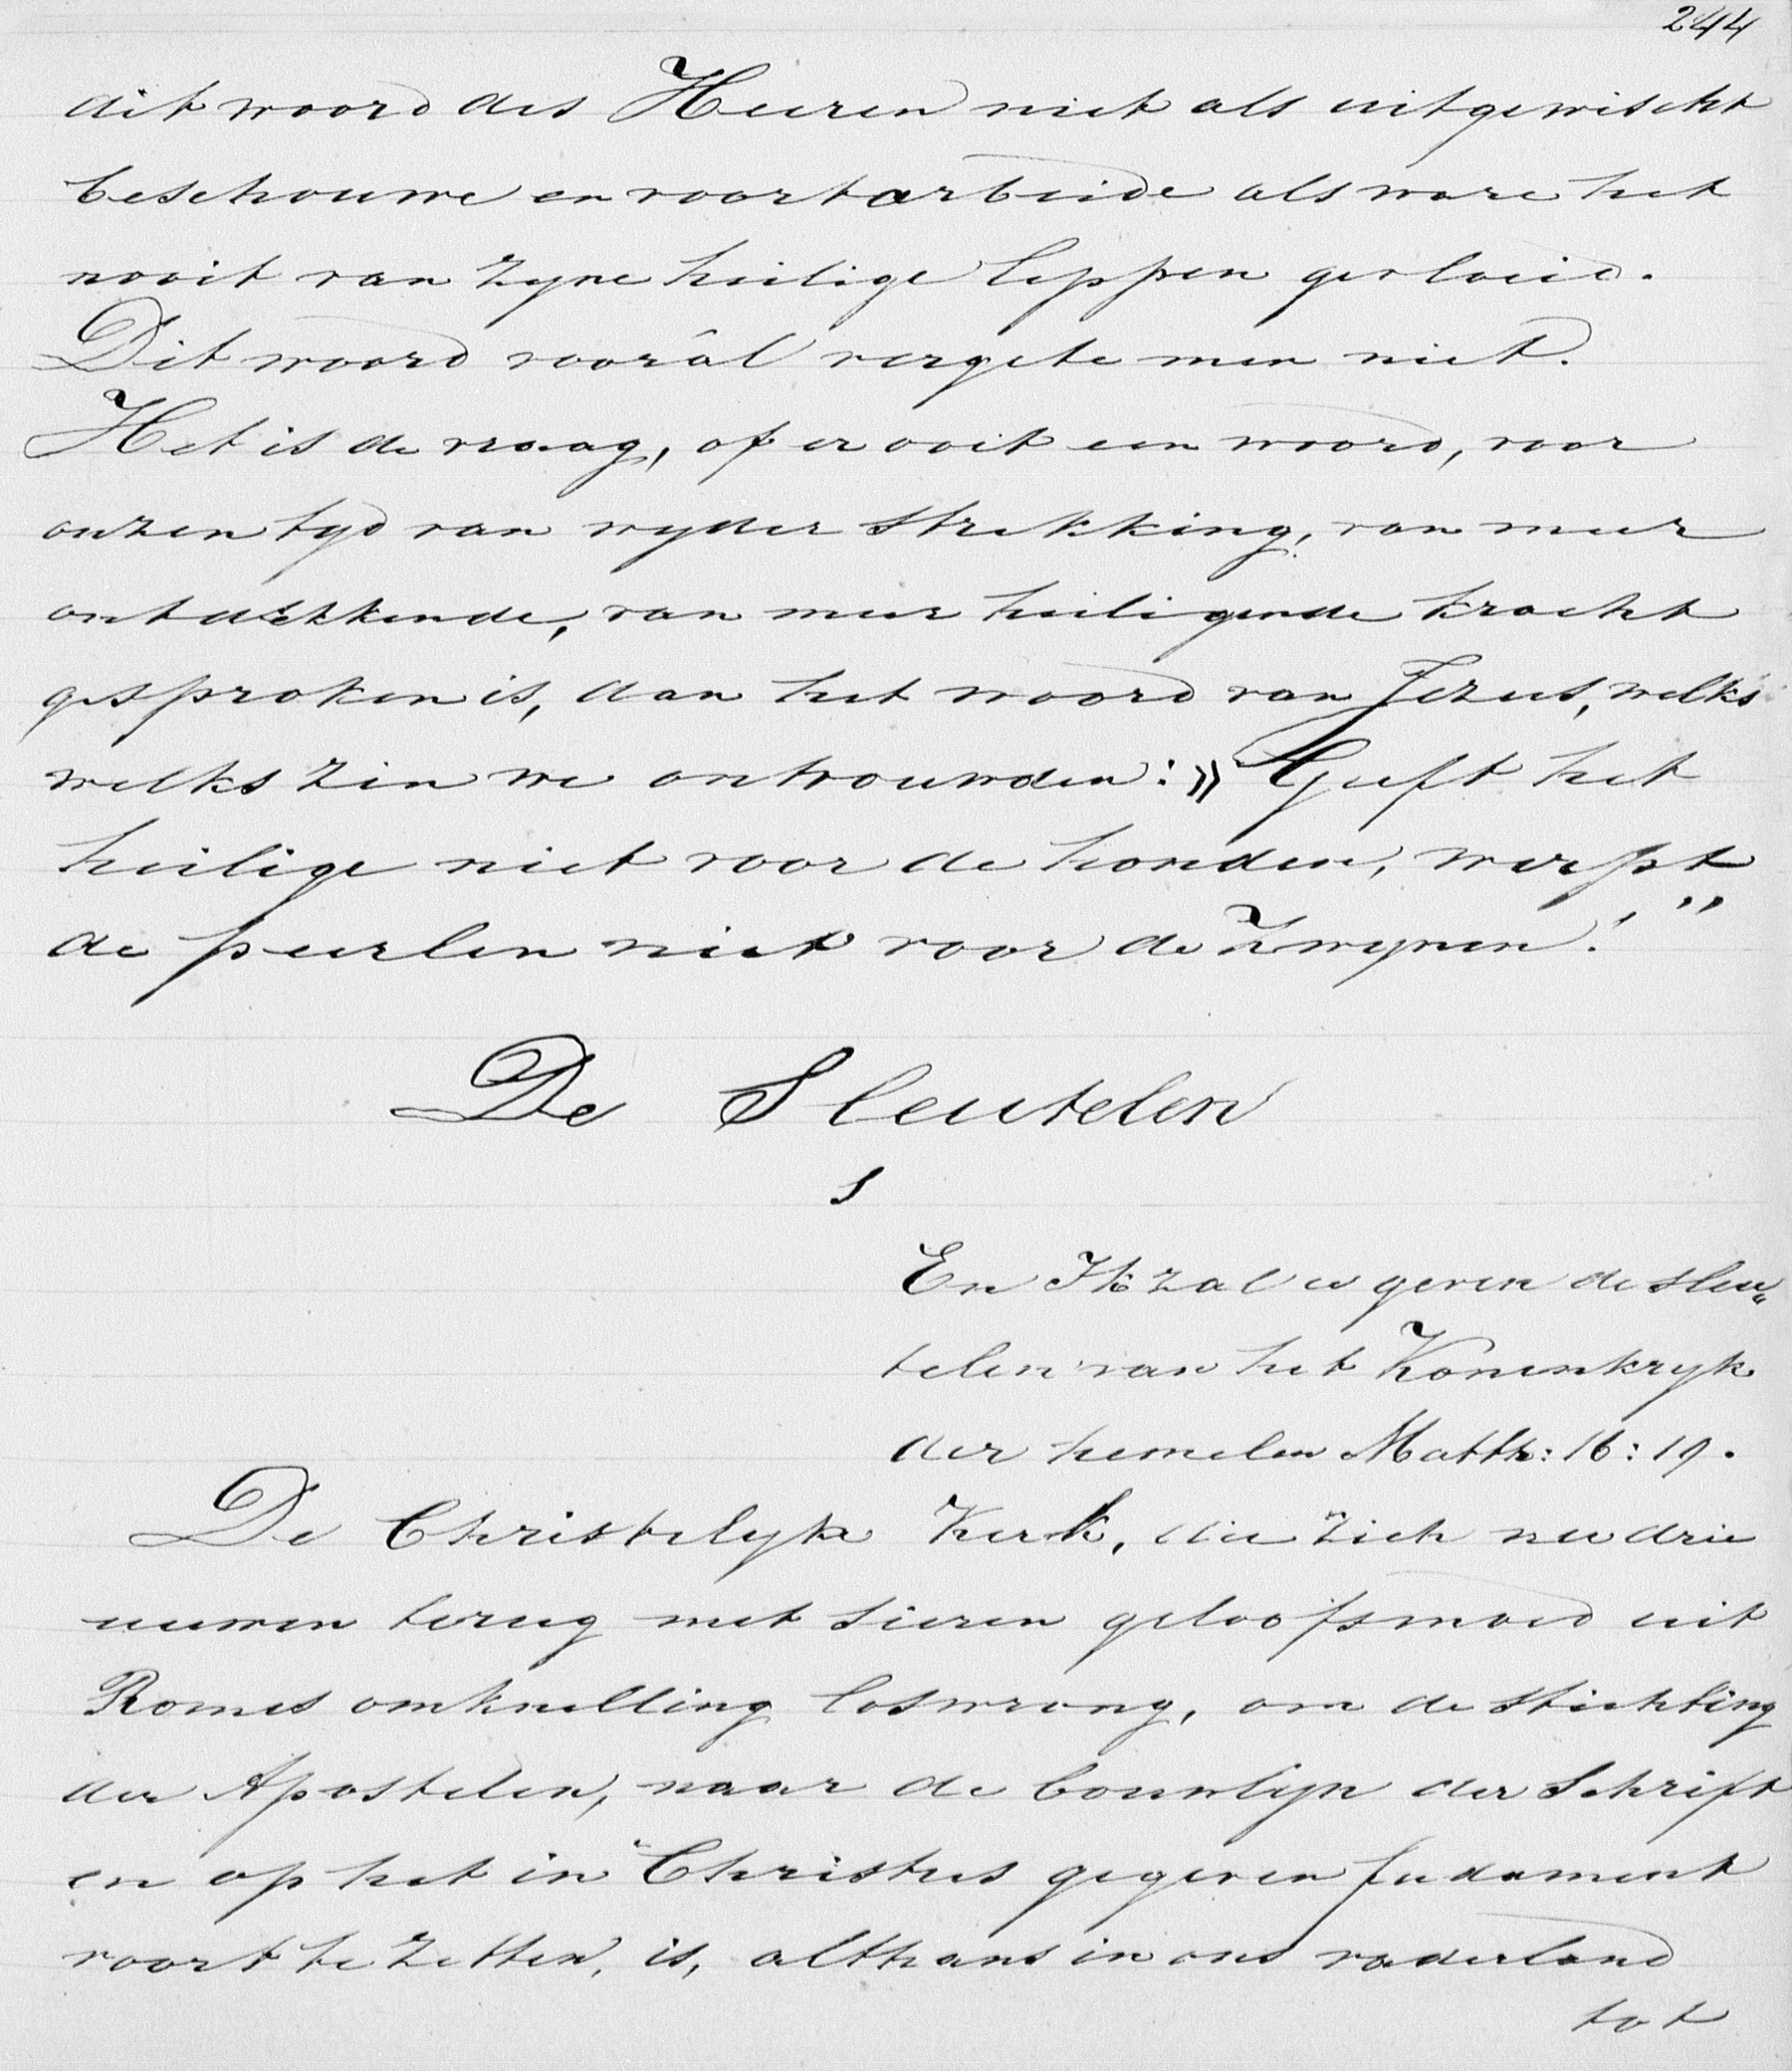 244
dit woord des Heeren niet als uitgewischt
beschouwe en voortarbeide als ware het
nooit van zyne heilige lippen gevloeid.
Dit woord vooràl vergete men niet.
Het is de vraag, of er ooit een woord, voor
onzen tyd van wyder strekking, van meer
ontdekkende, van meer heiligende kracht
gesproken is, dan het woord van Jezus, welks
welks zin we ontvouwden: » Geeft het
heilige niet voor de honden, werpt
de peerlen niet voor de zwynen!"
De Sleutelen
1
En Ik zal u geven de sleu„
telen van het Koninkryk
der hemelen Matth: 16: 19.
De Christelyke Kerk, die zich nu drie
eeuwen terug met fieren geloofsmoed uit
Romes omknelling loswrong, om de stichting
der Apostelen, naar de bouwlyn der Schrift
en op het in Christus gegeven fudament
voort te zetten, is, althans in ons vaderland
tot